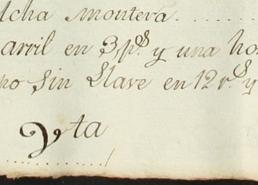 lcha montera
arril en 3 p.s y una ho
ho sin Llave en 12 r.s y
Yta